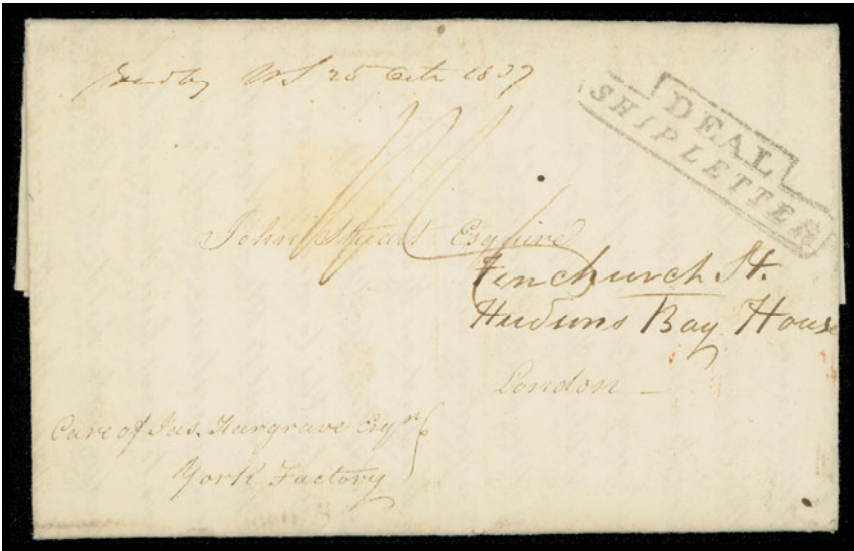 25 Octr 1837
DEAL
SHIP LETTER
John Stuart Esquire
Fenchurch St.
Hudsons Bay House
London -
Care of Jas. Hargrave Esqre
York Factory